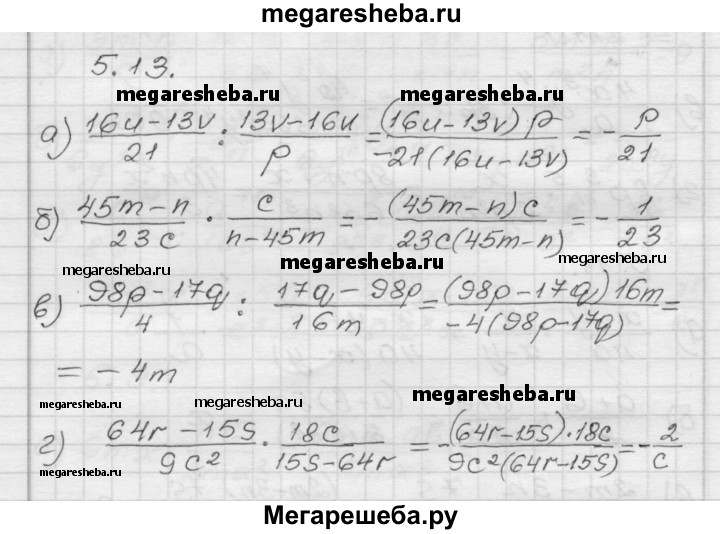 megaresheba.ru
5.13.
megaresheba.ru megaresheba.ru
а) (16u-13v)/21 : (13v-16u)/p = (16u-13v)p/(-21(16u-13v)) = -p/21
б) (45m-n)/(23c) · c/(n-45m) = -(45m-n)c/(23c(45m-n)) = -1/23
megaresheba.ru megaresheba.ru megaresheba.ru
в) (98p-17q)/4 : (17q-98p)/(16m) = (98p-17q)16m/(-4(98p-17q)) =
= -4m
megaresheba.ru megaresheba.ru megaresheba.ru
г) (64r-15s)/(9c²) · 18c/(15s-64r) = -(64r-15s)·18c/(9c²(64r-15s)) = -2/c
megaresheba.ru
Мегарешеба.ру